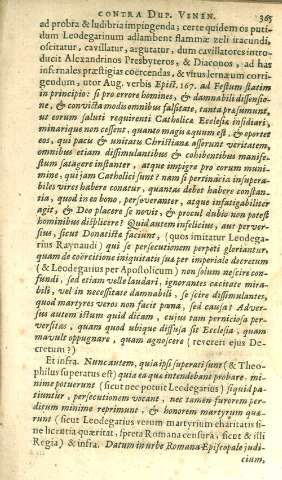 CONTRA DUP. VENEN. 365
ad probra & ludibria impingenda; certe quidem os puti-
dum Leodegarinum adlambent flammæ zeli iracundi,
oscitatur, cavillatur, argutatur, dum cavillatores intro-
ducit Alexandrinos Presbyteros, & Diaconos, ad has
infernales præstigias coërcendas, & virus lernæum corri-
gendum, utor Aug. verbis Epist. 167. ad Festum statim
in principio: si pro errore homines, & damnabili dissensio-
ne, & convicta modis omnibus falsitate, tanta præsumunt,
ut eorum saluti requirenti Catholica Ecclesia insidiari,
minarique non cessent, quanto magis æquum est, & oportet
eos, qui pacis & unitatis Christianæ asserunt veritatem,
omnibus etiam dissimulantibus & cohibentibus manife-
stum satagere instanter, atque impigre pro eorum muni-
mine, qui jam Catholici sunt? nam si pertinacia insupera-
biles vires habere conatur, quantas debet habere constan-
tia, quod in eo bono, perseveranter, atque infatigabiliter
agit, & Deo placere se novit, & procul dubio non potest
hominibus displicere? Quid autem infelicius, aut perver-
sius, sicut Donatistæ faciunt, (quos imitatur Leodega-
rius Raynaudi) qui se persecutionem perpeti gloriantur,
quam de coërcitione iniquitatis suæ per imperiale decretum
(& Leodegarius per Apostolicum) non solum nescire con-
fundi, sed etiam velle laudari, ignorantes cæcitate mira-
bili, vel in necessitate damnabili, se scire dissimulantes,
quod martyres veros non facit pœna, sed causa? Adver-
sus autem istum quid dicam, cujus tam perniciosa per-
versitas, quam quod ubique diffusa sit Ecclesia, quam
mavult oppugnare, quam agnoscere (revereri ejus De-
cretum?)
Et infra. Nunc autem, quia ipsi superati sunt (& Theo-
philus superatus est) quia ea quæ intendebant probare mi-
nime potuerunt (sicut nec potuit Leodegarius) si quid pa-
tiuntur, persecutionem vocant, nec tamen furorem per-
ditum minime reprimunt, & honorem martyrum quæ-
runt (sicut Leodegarius verum martyrium charitatis si-
ne licentia quæritat, spreta Romana censura, sicut & illi
Regia) & infra. Datum in urbe Romana Episcopale judi-
cium,